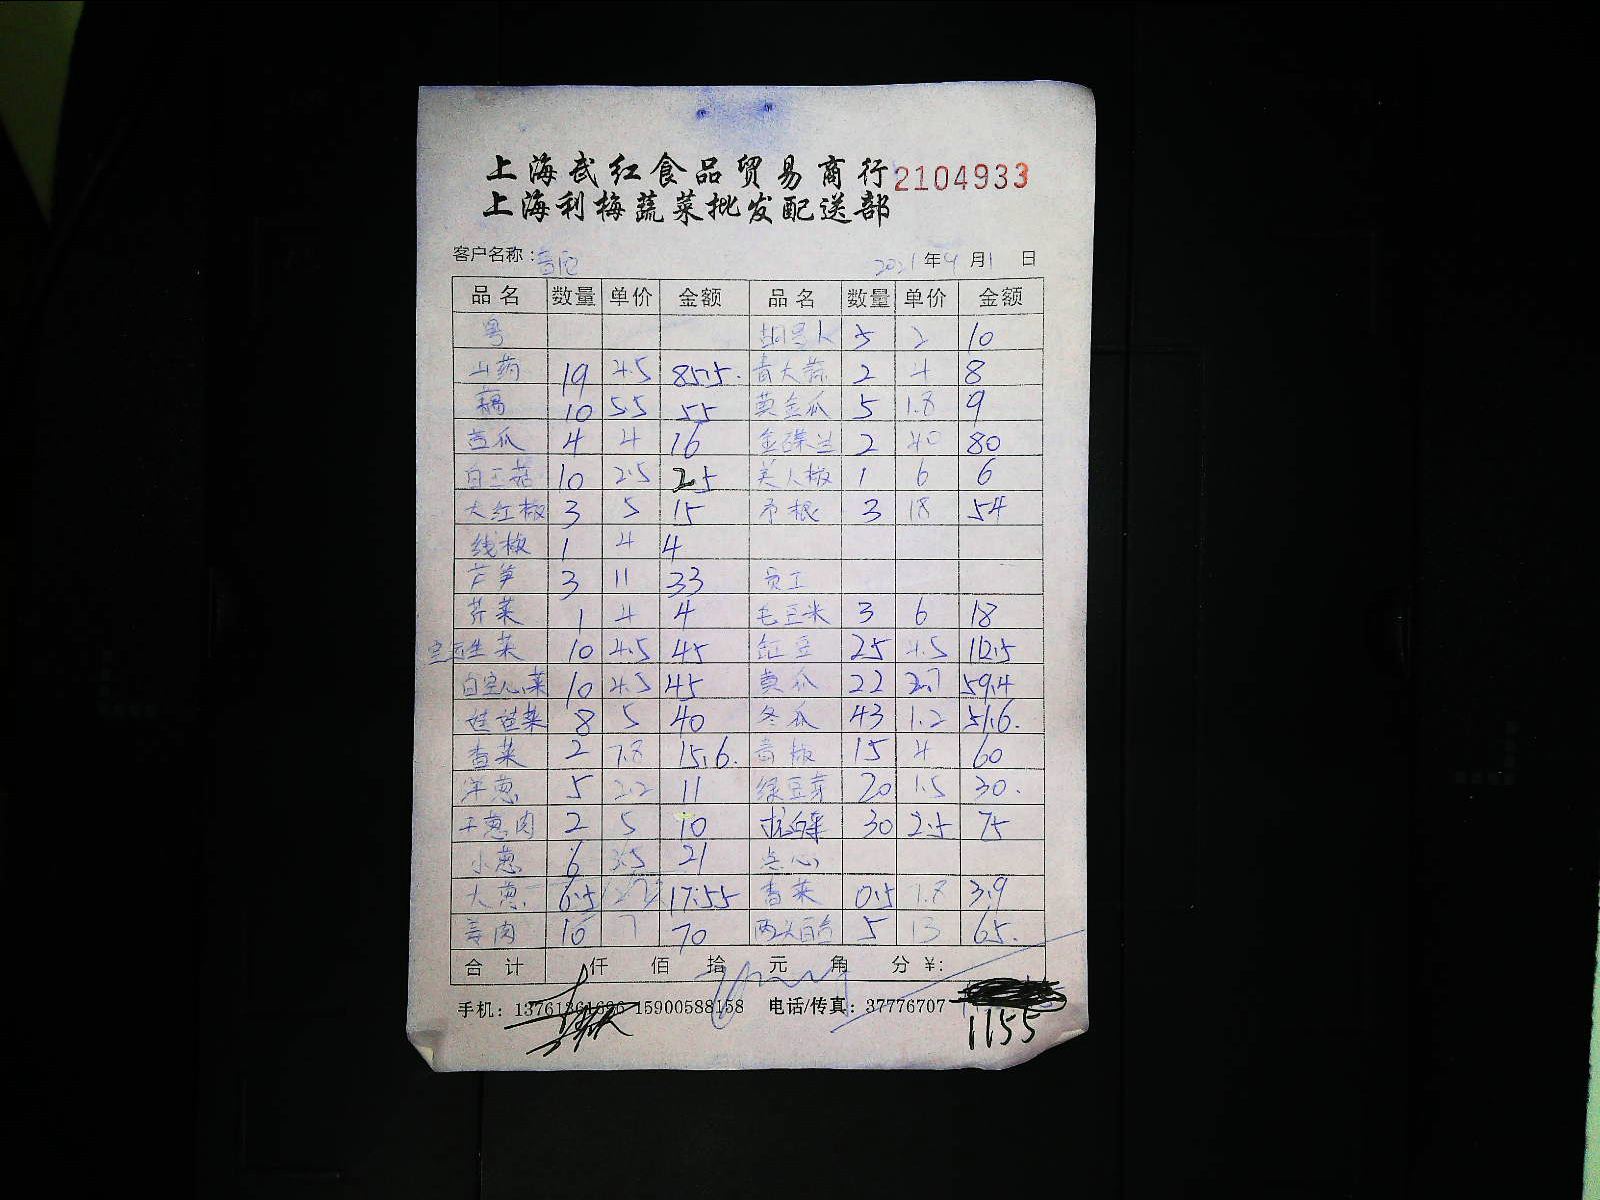 上海武红食品贸易商行 2104933
上海利梅蔬菜批发配送部
客户名称: 2021年9月1日
品名 数量 单价 金额 品名 数量 单价 金额
粤 5 2 10
山药 19 4.5 85.5. 青大蒜 2 4 8
藕 10 5.5 55 黄金瓜 5 1.8 9
苦瓜 4 4 16 金碟兰 2 40 80
白玉菇 10 2.5 25 美人椒 1 6 6
大红椒 3 5 15 3 18 54
线椒 1 4 4
芦笋 3 11 33 员工
芹菜 1 4 4 毛豆米 3 6 18
生菜 10 4.5 45 缸豆 25 4.5 112.5
白空心菜 10 4.5 45 黄瓜 22 2.7 59.4
娃娃菜 8 5 40 冬瓜 43 1.2 51.6.
香菜 2 7.8 15.6. 青椒 15 4 60
洋葱 5 2.2 11 绿豆芽 20 1.5 30.
干葱肉 2 5 10 杭白菜 30 2.5 75
小葱 6 3.5 21 点心
大葱 6.5 17.55 香菜 0.5 7.8 3.9
姜肉 10 7 70 两头百合 5 13 65.
合计 仟 佰 拾 元 角 分 ¥:
手机: 15900588158 电话/传真: 37776707
1155